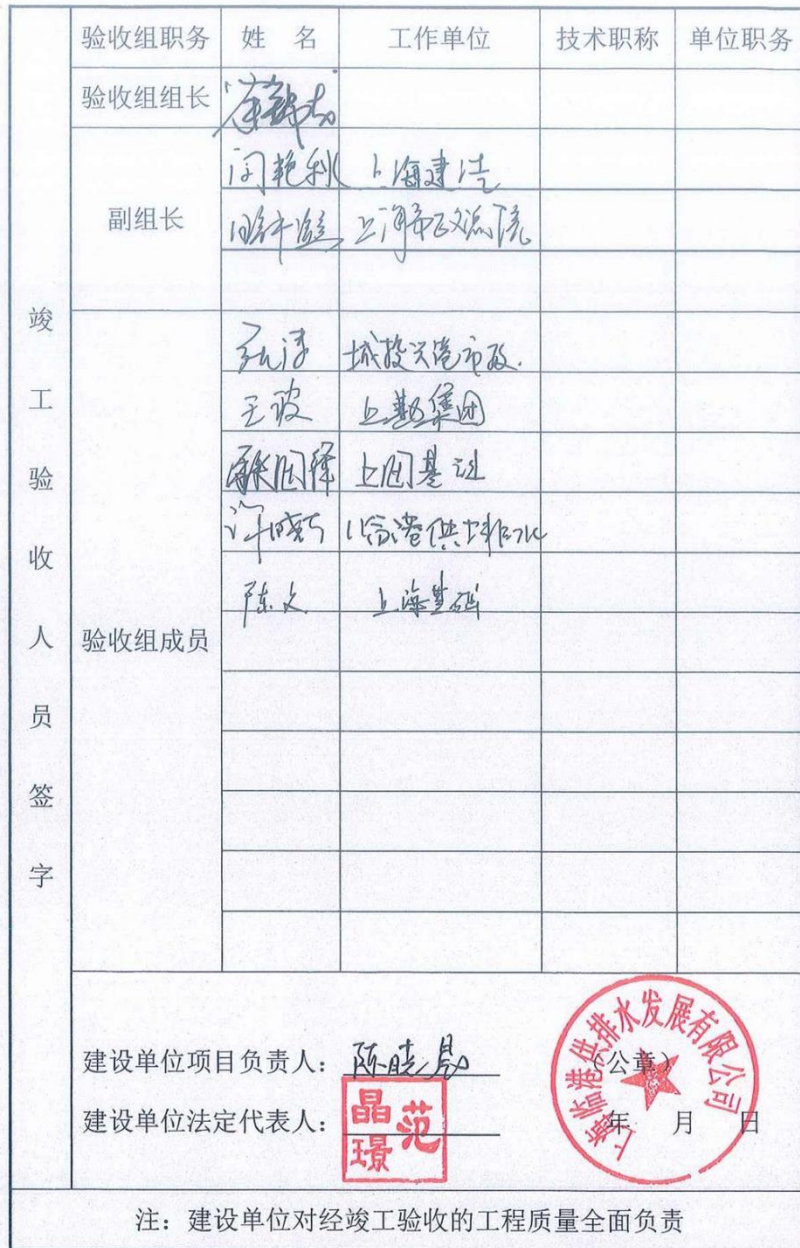 验收组职务 姓 名 工作单位 技术职称 单位职务
验收组组长
副组长
闵艳利 上海建浩
上海市政总院
竣工验收人员签字
验收组成员
张涛 城投兴港市政.
王波 上勘集团
上固基础
许晓 临港供排水
陈文 上海基础
建设单位项目负责人: 陈晓勇
(公章)
建设单位法定代表人:
范晶璟
年 月 日
上海临港供排水发展有限公司
注: 建设单位对经竣工验收的工程质量全面负责